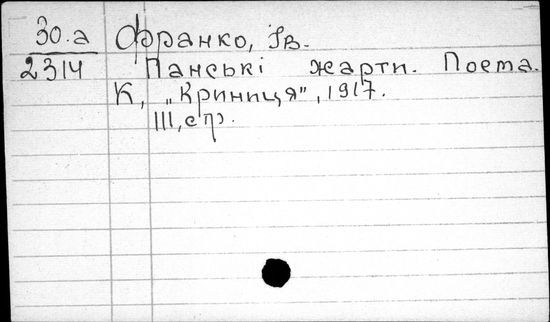 30.а Франко, Ів.
2314 Панські жарти. Поема.
К, „Криниця", 1917.
111, стр.